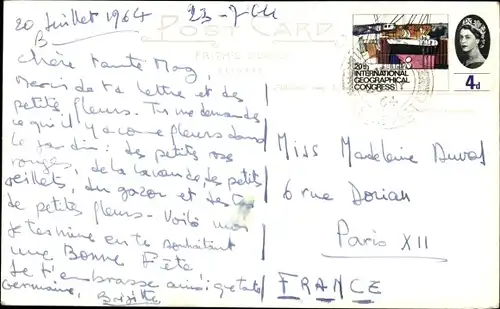 20 Juillet 1964
23-7-64
B
POST CARD
20th
INTERNATIONAL
GEOGRAPHICAL
CONGRESS
4d
Chère Tante Mag,
Merci de ta lettre et des
petites fleurs. Tu me demandes
ce qu'il y a comme fleurs dans
le jardin: des petits roses
rouges, de la lavande, des petits
oeillets, du gazon et des
de petites fleurs. Voilà
je termine en te souhaitant
une Bonne Fête!
Je t'embrasse ainsi que tante
Germaine, Brigitte
Miss Madeleine Duval
6 rue Dorian
Paris XII
FRANCE